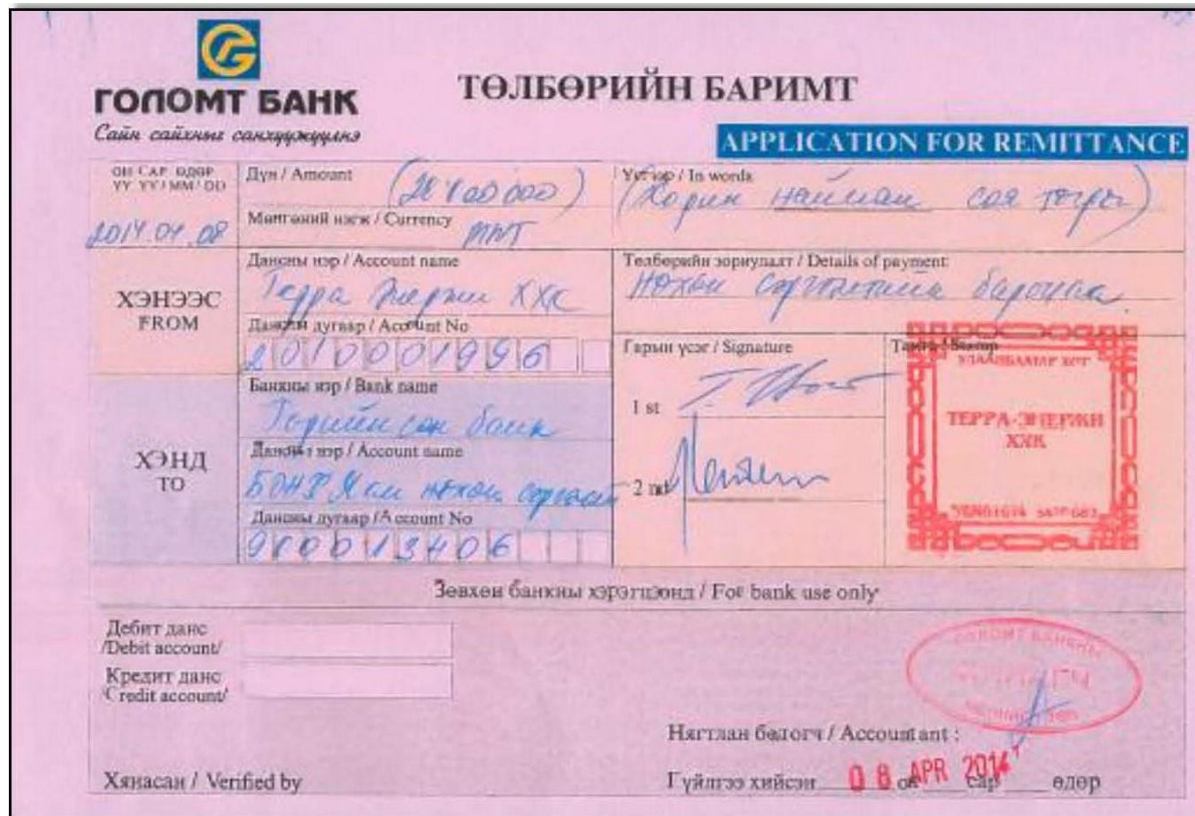 ГОЛОМТ БАНК
Сайн сайхныг санхүүжүүлнэ
ТӨЛБӨРИЙН БАРИМТ
APPLICATION FOR REMITTANCE
ОН САР ӨДӨР
YY YY / MM / DD
2014.04.08
Дүн / Amount
Мөнгөний нэгж / Currency
MNT
Үсгээр / In words
(Хорин найман сая төгрөг)
ХЭНЭЭС
FROM
Дансны нэр / Account name
Терра Энержи ХХК
Дансны дугаар / Account No
2010001996
Төлбөрийн зориулалт / Details of payment:
Нөхөн сэргээлтийн барьцаа
ХЭНД
TO
Банкны нэр / Bank name
Төрийн сан банк
Дансны нэр / Account name
нөхөн сэргээлт
Дансны дугаар / Account No
900013406
Гарын үсэг / Signature
1 st
2 nd
Тамга / Stamp
УЛААНБААТАР ХОТ
ТЕРРА-ЭНЕРЖИ
ХХК
Зөвхөн банкны хэрэгцээнд / For bank use only
Дебит данс
/Debit account/
Кредит данс
/Credit account/
ГОЛОМТ БАНКНЫ
Нягтлан бодогч / Accountant :
Хянасан / Verified by
Гүйлгээ хийсэн 08 он APR 2014 сар өдөр